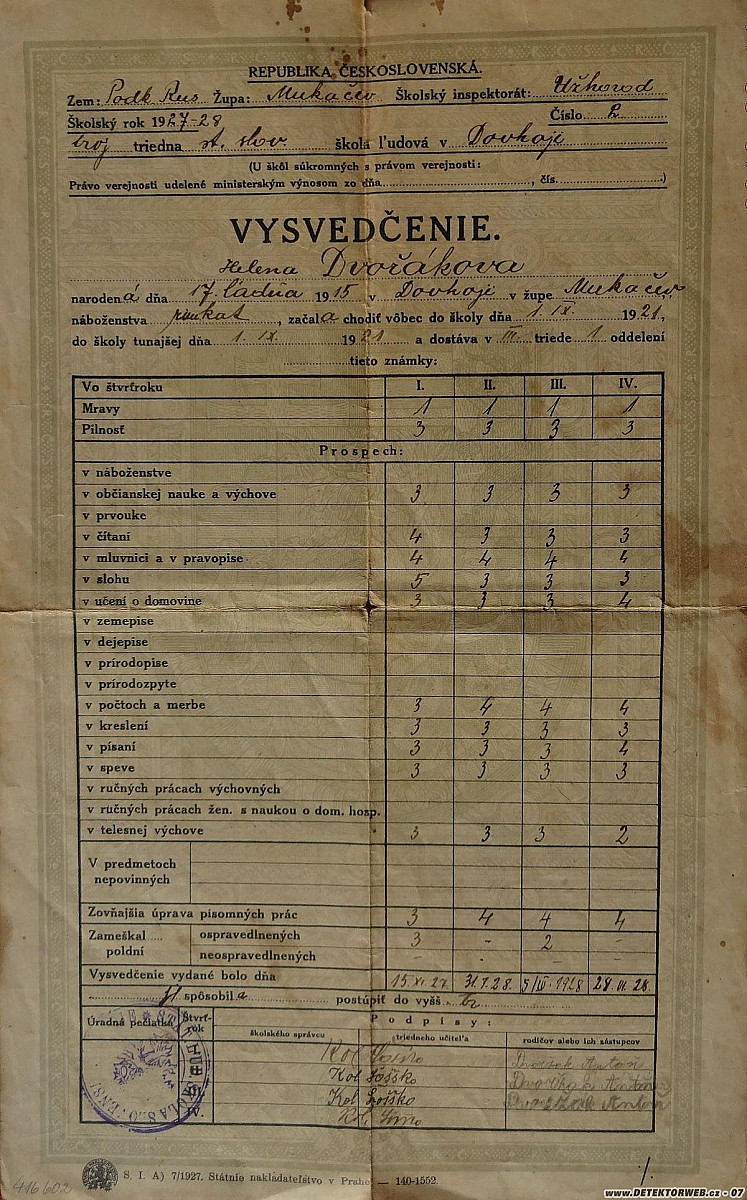 REPUBLIKA ČESKOSLOVENSKÁ.
Zem: Podk Rus Župa: Mukačev Školský inspektorát: Užhorod
Školský rok 1927-28 Číslo 2
troj triedna st. slov. škola ľudová v Dovhoji
(U škôl súkromných s právom verejnosti:
Právo verejnosti udelené ministerským výnosom zo dňa , čís. .)
VYSVEDČENIE.
Helena Dvořákova
narodená dňa 17. 1915 v Dovhoji v župe Mukačev,
náboženstva , začala chodiť vôbec do školy dňa 1. IX. 1921,
do školy tunajšej dňa 1. IX. 1921 a dostáva v III. triede 1 oddelení
tieto známky:
Vo štvrťroku I. II. III. IV.
Mravy 1 1 1 1
Pilnosť 3 3 3 3
Prospech:
v náboženstve
v občianskej nauke a výchove 3 3 3 3
v prvouke
v čítaní 4 3 3 3
v mluvnici a v pravopise 4 4 4 4
v slohu 5 3 3 3
v učení o domovine 3 3 3 4
v zemepise
v dejepise
v prírodopise
v prírodozpyte
v počtoch a merbe 3 4 4 4
v kreslení 3 3 3 3
v písaní 3 3 3 4
v speve 3 3 3 3
v ručných prácach výchovných
v ručných prácach žen. s naukou o dom. hosp.
v telesnej výchove 3 3 3 2
V predmetoch
nepovinných
Zovňajšia úprava písomných prác 3 4 4 4
Zameškal poldní
ospravedlnených 3 - 2 -
neospravedlnených - - - -
Vysvedčenie vydané bolo dňa 15. XI. 27. 31. 1. 28. 28. VI. 28.
spôsobila postúpiť do vyšš.
Úradná pečiatka Štvrť-rok Podpisy:
školského správcu triedneho učiteľa rodičov alebo ich zástupcov
Antoň
S. I. A) 7/1927. Státnie nakladateľstvo v Prahe — 140-1552.
416602
www.DETEKTORWEB.cz - 07